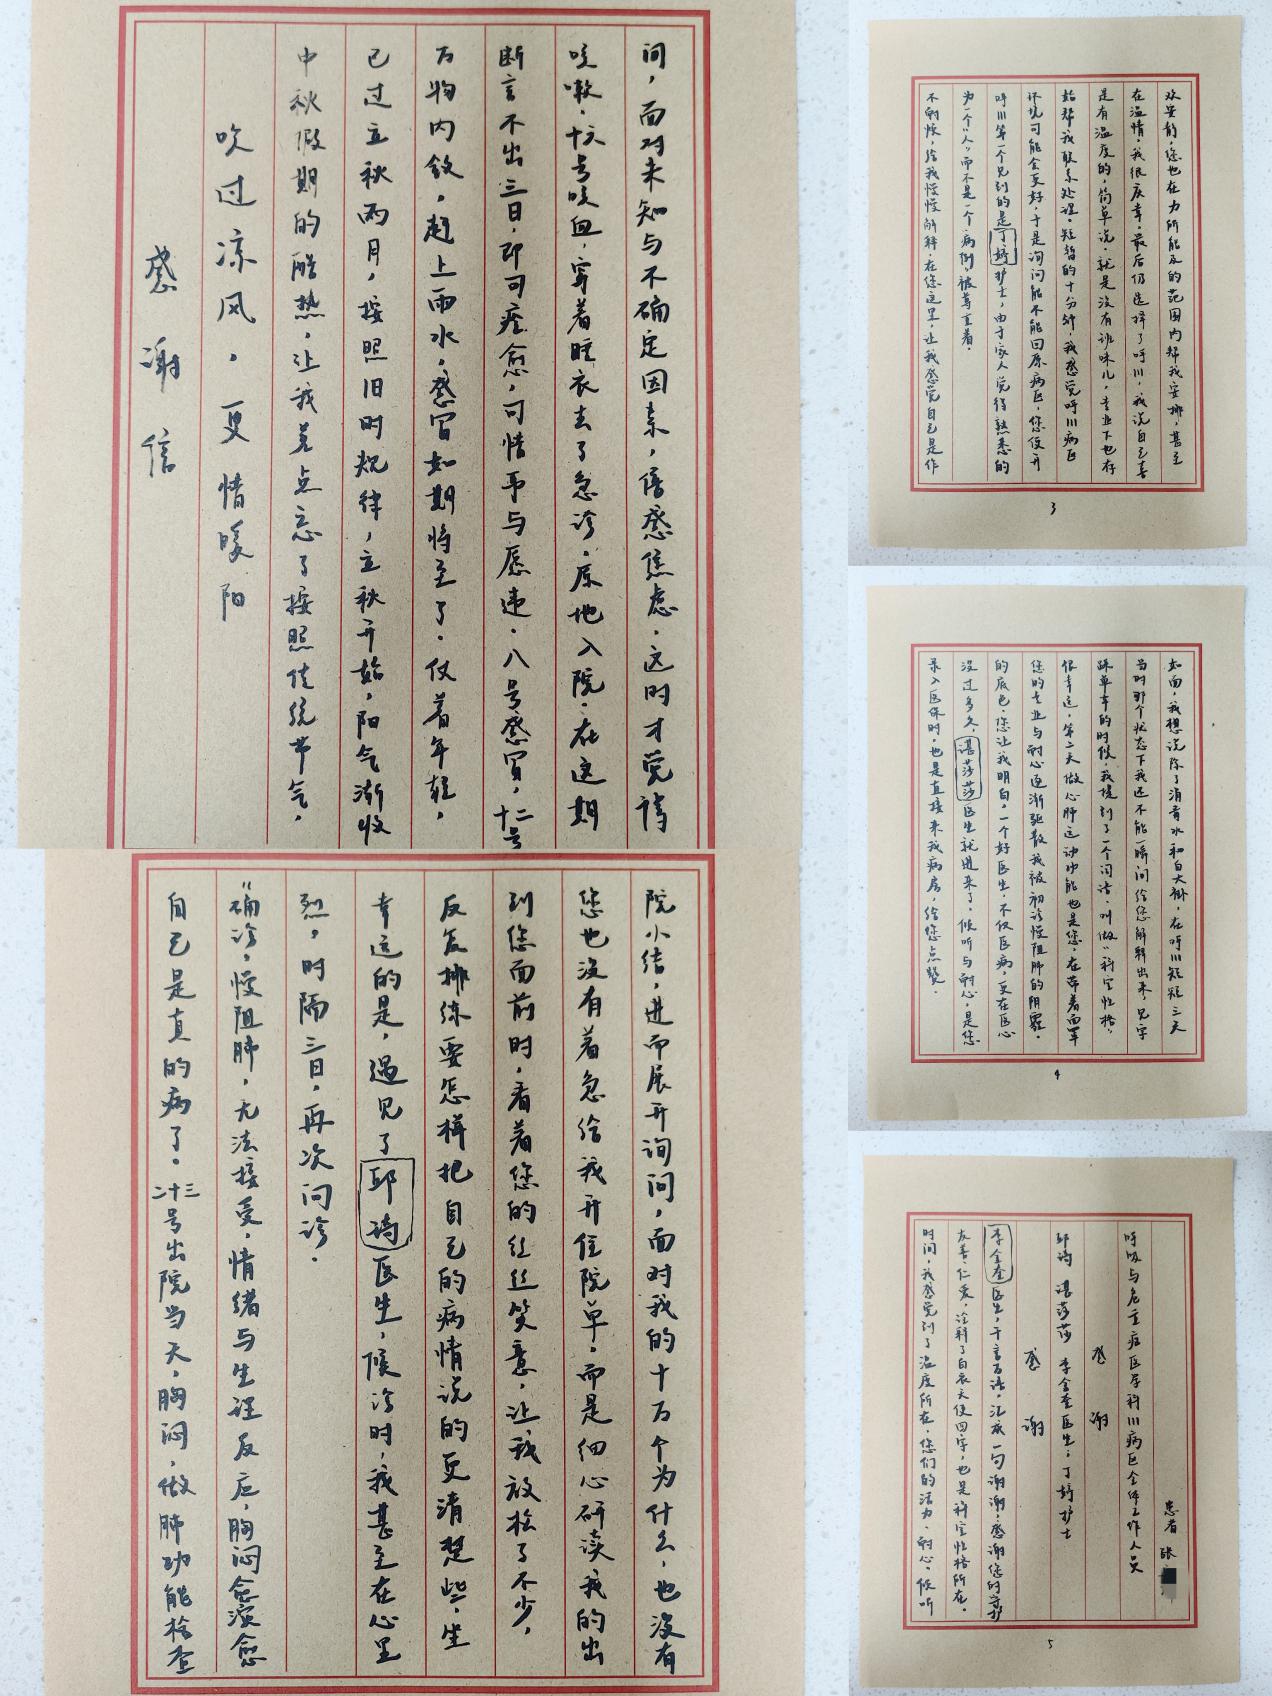 感谢信
吹过凉风，更惜暖阳
中秋假期的酷热，让我差点忘了按照传统节气，
已过立秋两月，按照旧时规律，立秋开始，阳气渐收
万物内敛，赶上雨水，感冒如期将至了。仗着年轻，
断言不出三日，即可痊愈，可惜事与愿违。八号感冒，十二号
咳嗽，十六号咳血，穿着睡衣去了急诊，原地入院。在这期
间，面对未知与不确定因素，倍感焦虑。这时才觉得
自己是真的病了。二十三号出院当天，胸闷，做肺功能检查
“确诊”慢阻肺，无法接受，情绪与生理反应，胸闷愈演愈
烈，时隔三日，再次问诊。
幸运的是，遇见了邱琦医生，候诊时，我甚至在心里
反复排练要怎样把自己的病情说的更清楚些，坐
到您面前时，看着您的丝丝笑意，让我放松了不少，
您也没有着急给我开住院单，而是细心研读我的出
院小结，进而展开询问，面对我的十万个为什么，也没有
不耐烦，给我慢慢解释，在您这里，让我感觉自己是作
为一个“人”而不是一个病例，被尊重着。
呼III第一个见到的是丁婷护士，由于家人觉得熟悉的
环境可能会更好，于是询问能不能回原病区，您便开
始帮我联系处理，短暂的十分钟，我感觉呼III病区
是有温度的，简单说，就是没有班味儿，专业下也存
在温情，我很庆幸，最后仍选择了呼III，我说自己喜
欢安静，您也在力所能及的范围内帮我安排，甚至
3
录入医保时，也是直接来我病房，给您点赞。
没过多久，谌莎莎医生就进来了，倾听与耐心，是您
的底色，您让我明白，一个好医生，不仅医病，更在医心
您的专业与耐心逐渐驱散我被初诊慢阻肺的阴霾。
很幸运，第二天做心肺运动功能也是您，在带着面罩
踩单车的时候，我提到了一个词语，叫做“科室性格”，
当时那个状态下我还不能一瞬间给您解释出来，见字
如面，我想说除了消毒水和白大褂，在呼III短短三天
4
时间，我感觉到了温度所在，您们的活力、耐心、倾听
友善、仁爱，诠释了白衣天使四字，也是科室性格所在。
李金奎医生，千言万语，汇成一句谢谢，感谢您的守护
感谢
邱琦 谌莎莎 李金奎医生；丁婷护士
感谢
呼吸与危重症医学科III病区全体工作人员
患者 张
5